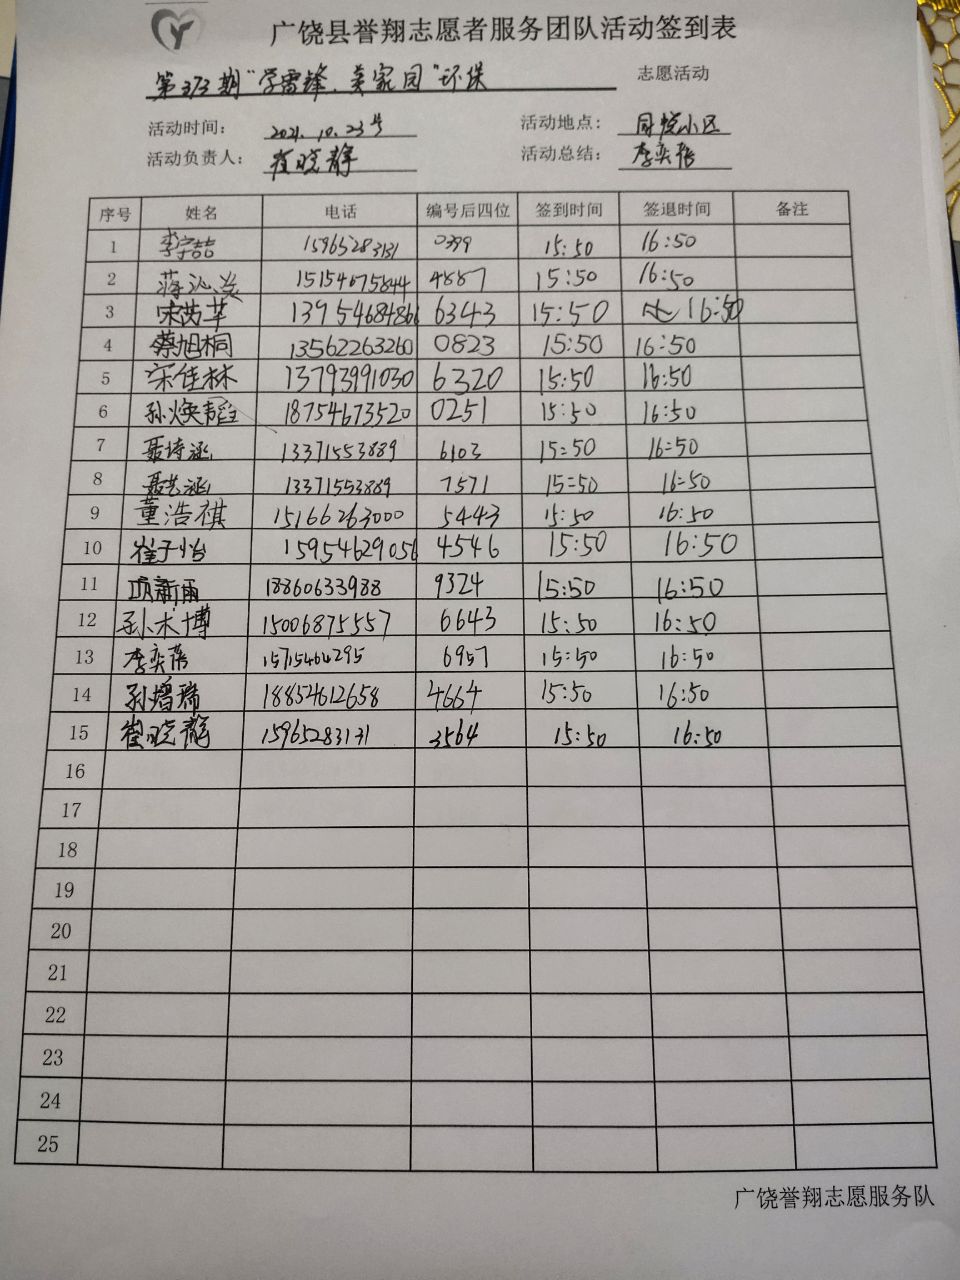 广饶县誉翔志愿者服务团队活动签到表
第373期"学雷锋、美家园"环保 志愿活动
活动时间： 2021.10.23号 活动地点： 小区
活动负责人： 崔晓静 活动总结： 李奕蓓
序号 姓名 电话 编号后四位 签到时间 签退时间 备注
1 李宇喆 15965283131 0399 15:50 16:50
2 蒋沁 15154675844 4887 15:50 16:50
3 宋芮苇 13954684866 6343 15:50 16:50
4 蔡旭桐 13562263260 0823 15:50 16:50
5 宋佳林 13793991030 6320 15:50 16:50
6 孙焕韬 18754673520 0251 15:50 16:50
7 聂诗涵 13371553889 6103 15:50 16:50
8 聂艺涵 13371553889 7571 15:50 16:50
9 董浩祺 15166263000 5443 15:50 16:50
10 崔子怡 15954629056 4546 15:50 16:50
11 项新雨 18860633988 9324 15:50 16:50
12 孙木博 15006875557 6643 15:50 16:50
13 李奕蓓 15715464295 6957 15:50 16:50
14 孙增瑞 18854612658 4664 15:50 16:50
15 崔晓静 15965283131 3564 15:50 16:50
16
17
18
19
20
21
22
23
24
25
广饶誉翔志愿服务队